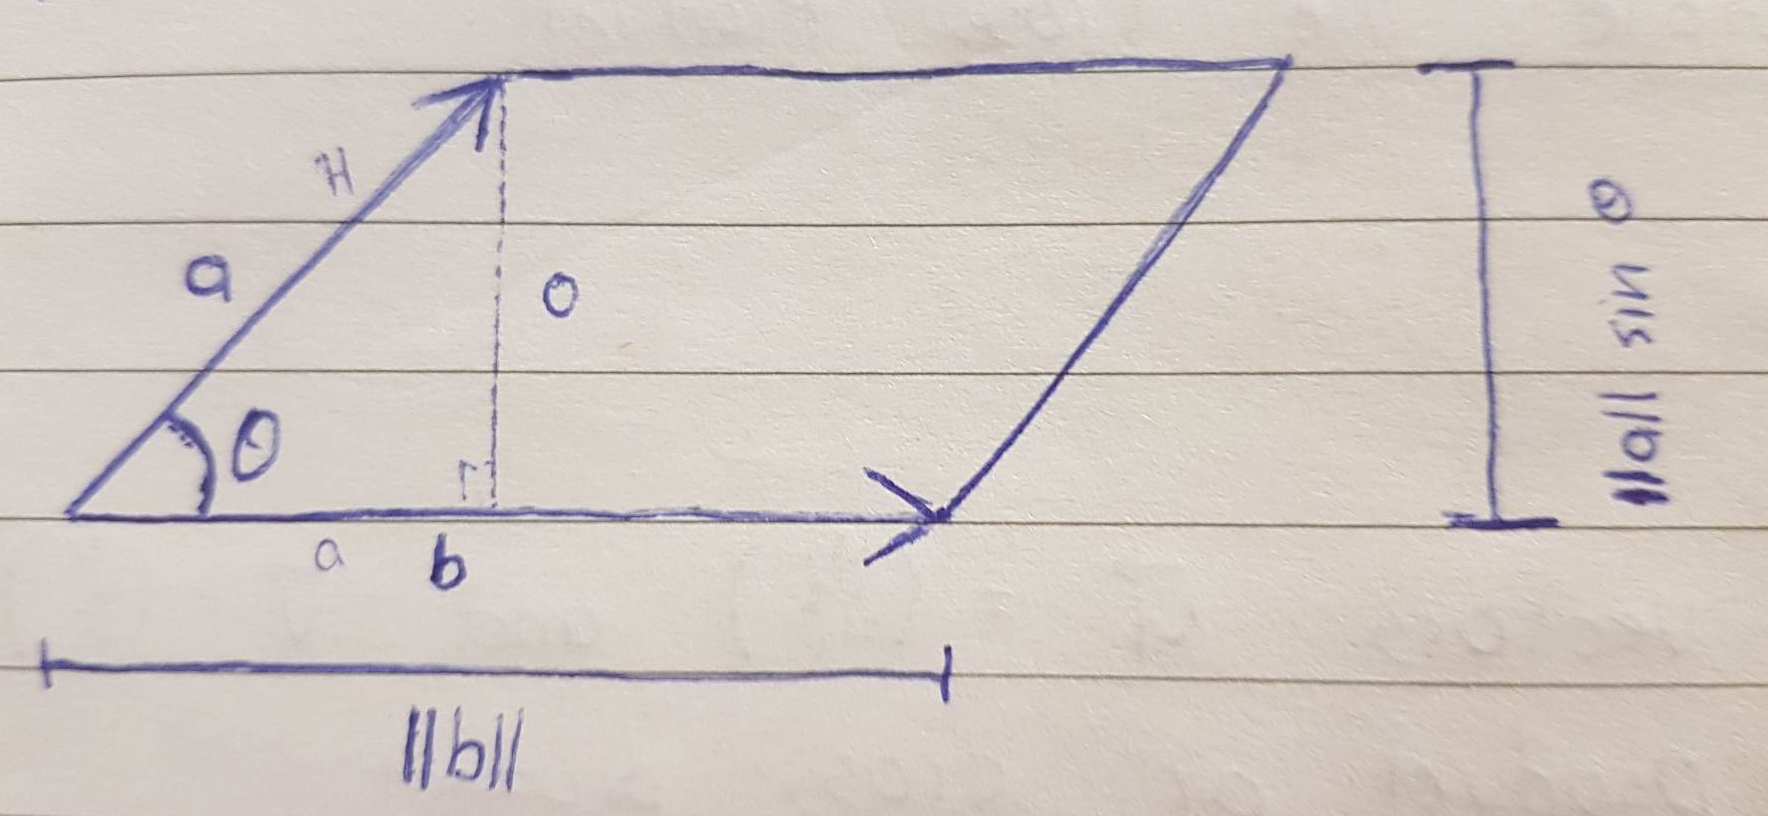 H
a
O
θ
a
b
||b||
||a|| sin θ